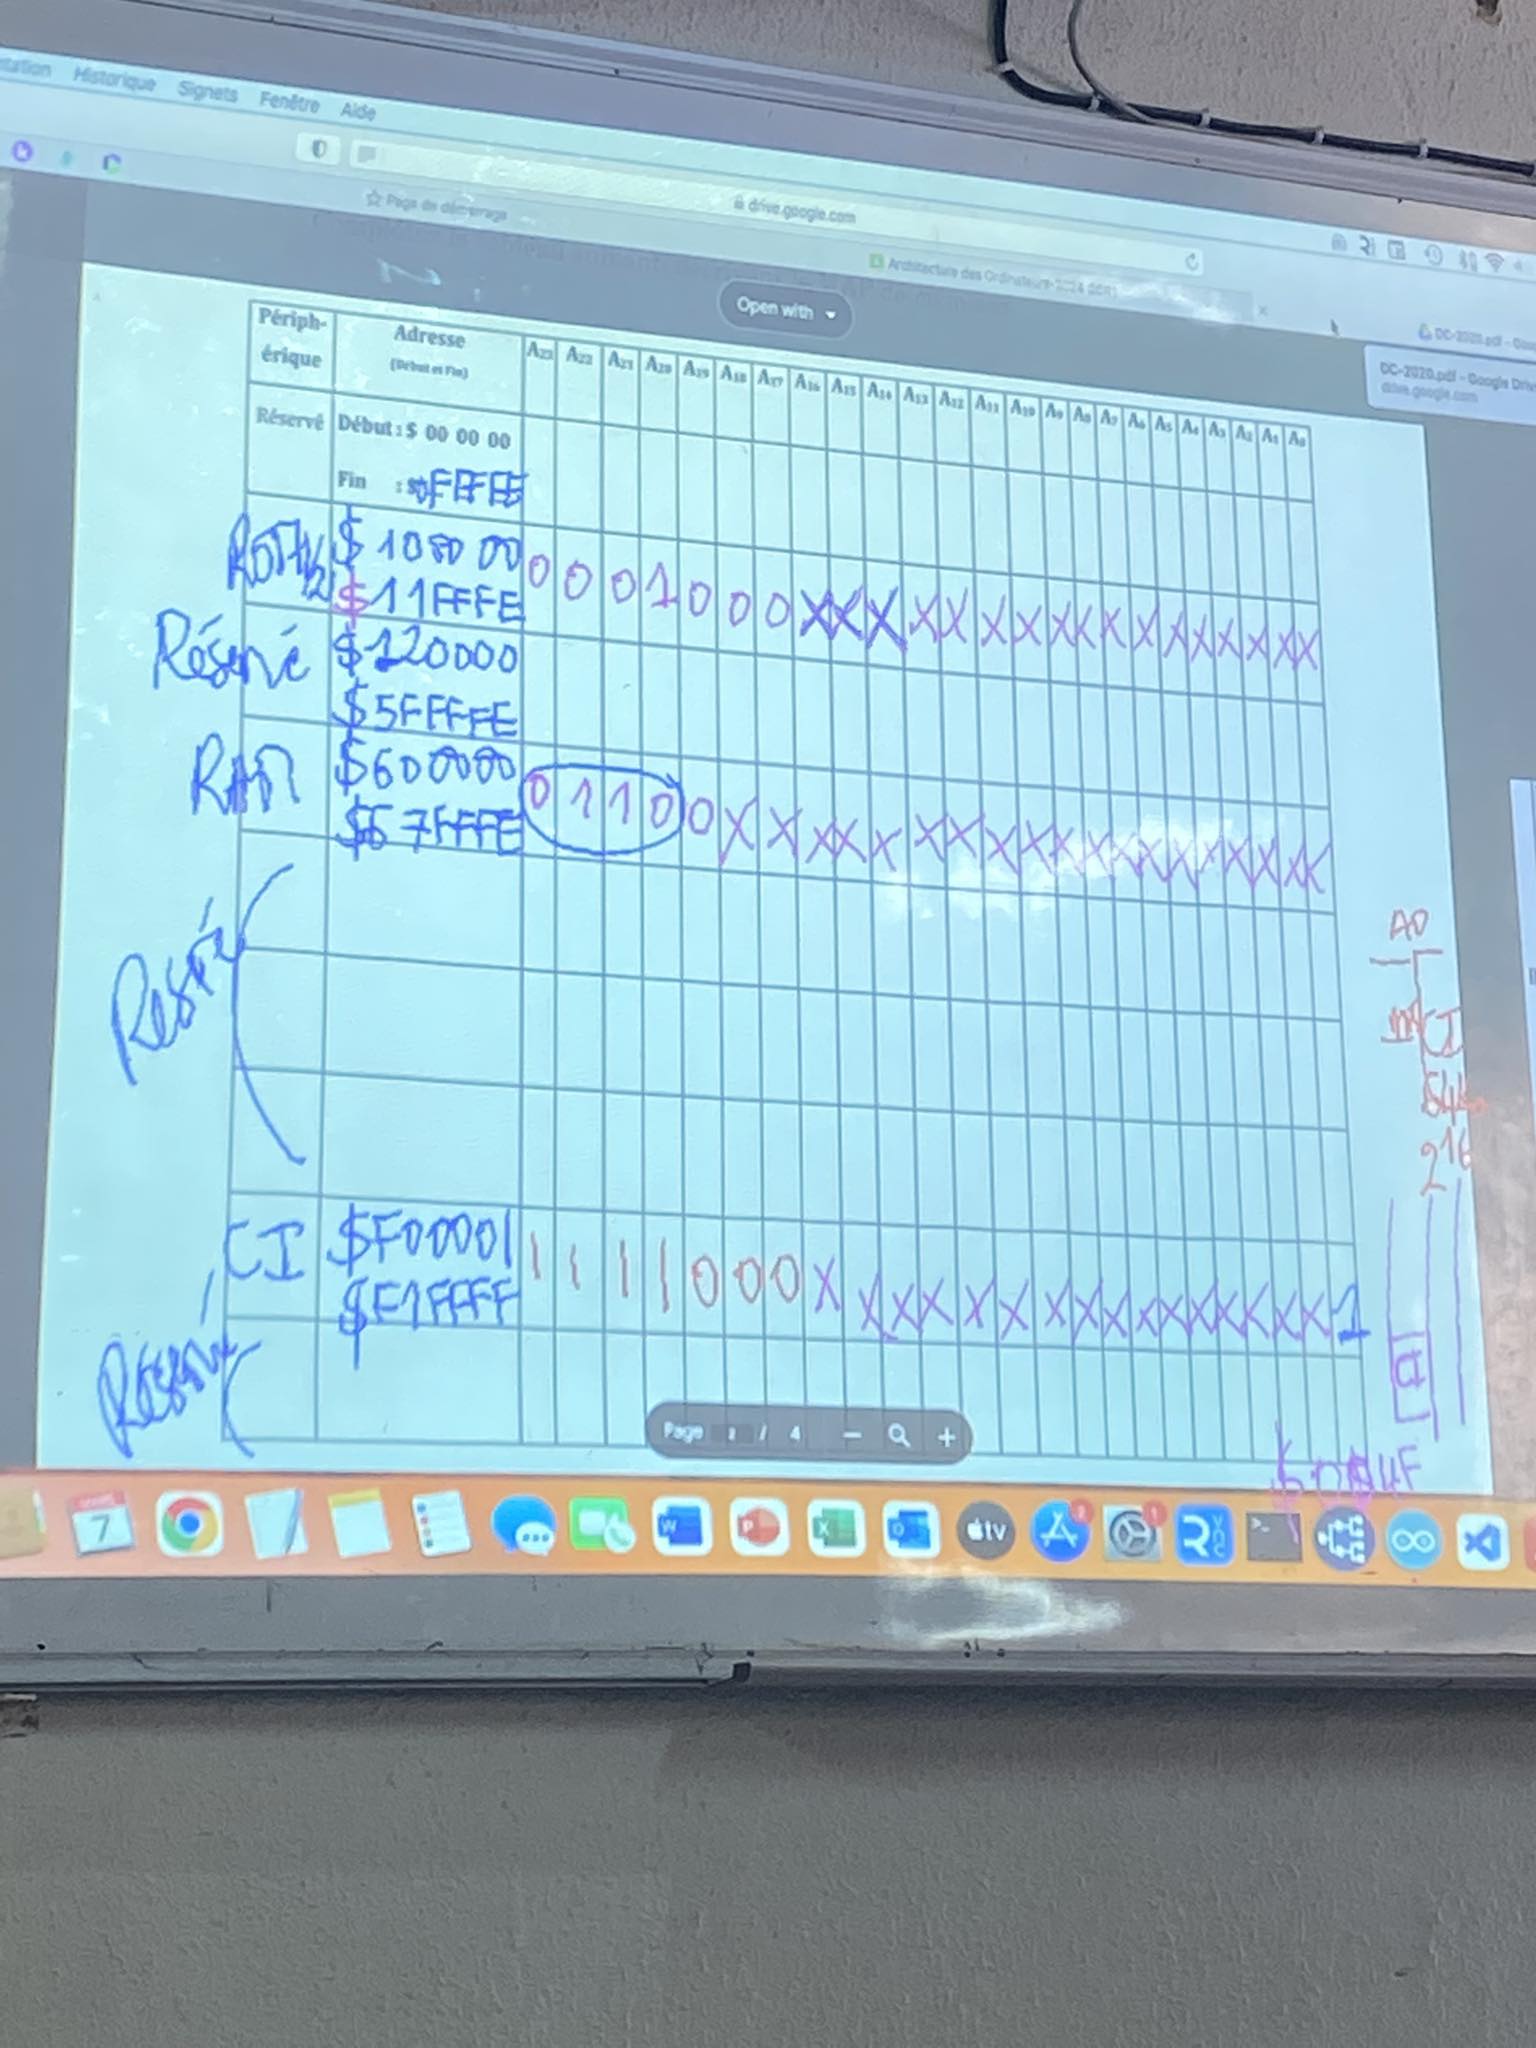 Historique Signets Fenêtre Aide
Page de démarrage
drive.google.com
Architecture des Ordinateurs-2024
DC-2020.pdf - Google Drive
drive.google.com
Open with
Périph-érique Adresse (Début et Fin) A23 A22 A21 A20 A19 A18 A17 A16 A15 A14 A13 A12 A11 A10 A9 A8 A7 A6 A5 A4 A3 A2 A1 A0
Réservé Début : $ 00 00 00
Fin :
$ 100000
$11FFFE
0 0 0 1 0 0 0 X X X X X X X X X X X X X X X X X
Réservé $120000
$5FFFFE
RAM $600000
$67FFFE
0 1 1 0 0 X X X X X X X X X X X X X X X X X X X
CI $F00001
$F1FFFF
1 1 1 1 0 0 0 X X X X X X X X X X X X X X X X 1
Réservé
A0
CI
2^16
CI
Page / 4
7
W
P
X
tv